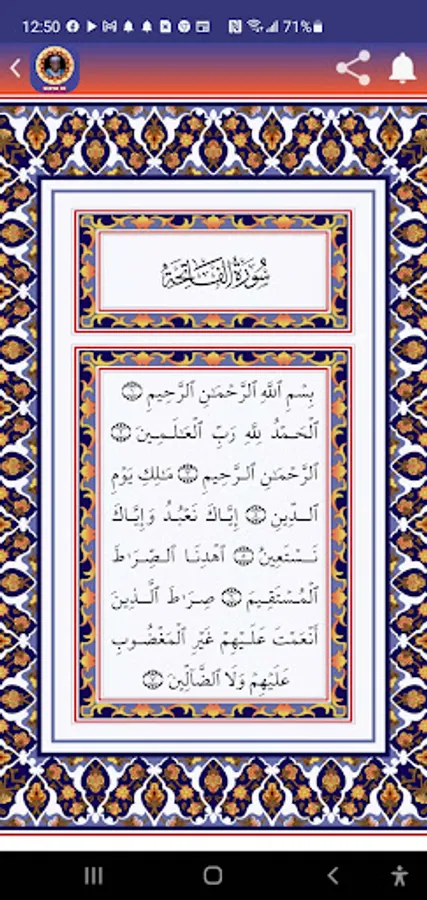 12:50
71%
سُورَةُ الفَاتِحَةِ
بِسْمِ ٱللَّهِ ٱلرَّحْمَٰنِ ٱلرَّحِيمِ ۝١
ٱلْحَمْدُ لِلَّهِ رَبِّ ٱلْعَٰلَمِينَ ۝٢
ٱلرَّحْمَٰنِ ٱلرَّحِيمِ ۝٣ مَٰلِكِ يَوْمِ
ٱلدِّينِ ۝٤ إِيَّاكَ نَعْبُدُ وَإِيَّاكَ
نَسْتَعِينُ ۝٥ ٱهْدِنَا ٱلصِّرَٰطَ
ٱلْمُسْتَقِيمَ ۝٦ صِرَٰطَ ٱلَّذِينَ
أَنْعَمْتَ عَلَيْهِمْ غَيْرِ ٱلْمَغْضُوبِ
عَلَيْهِمْ وَلَا ٱلضَّآلِّينَ ۝٧